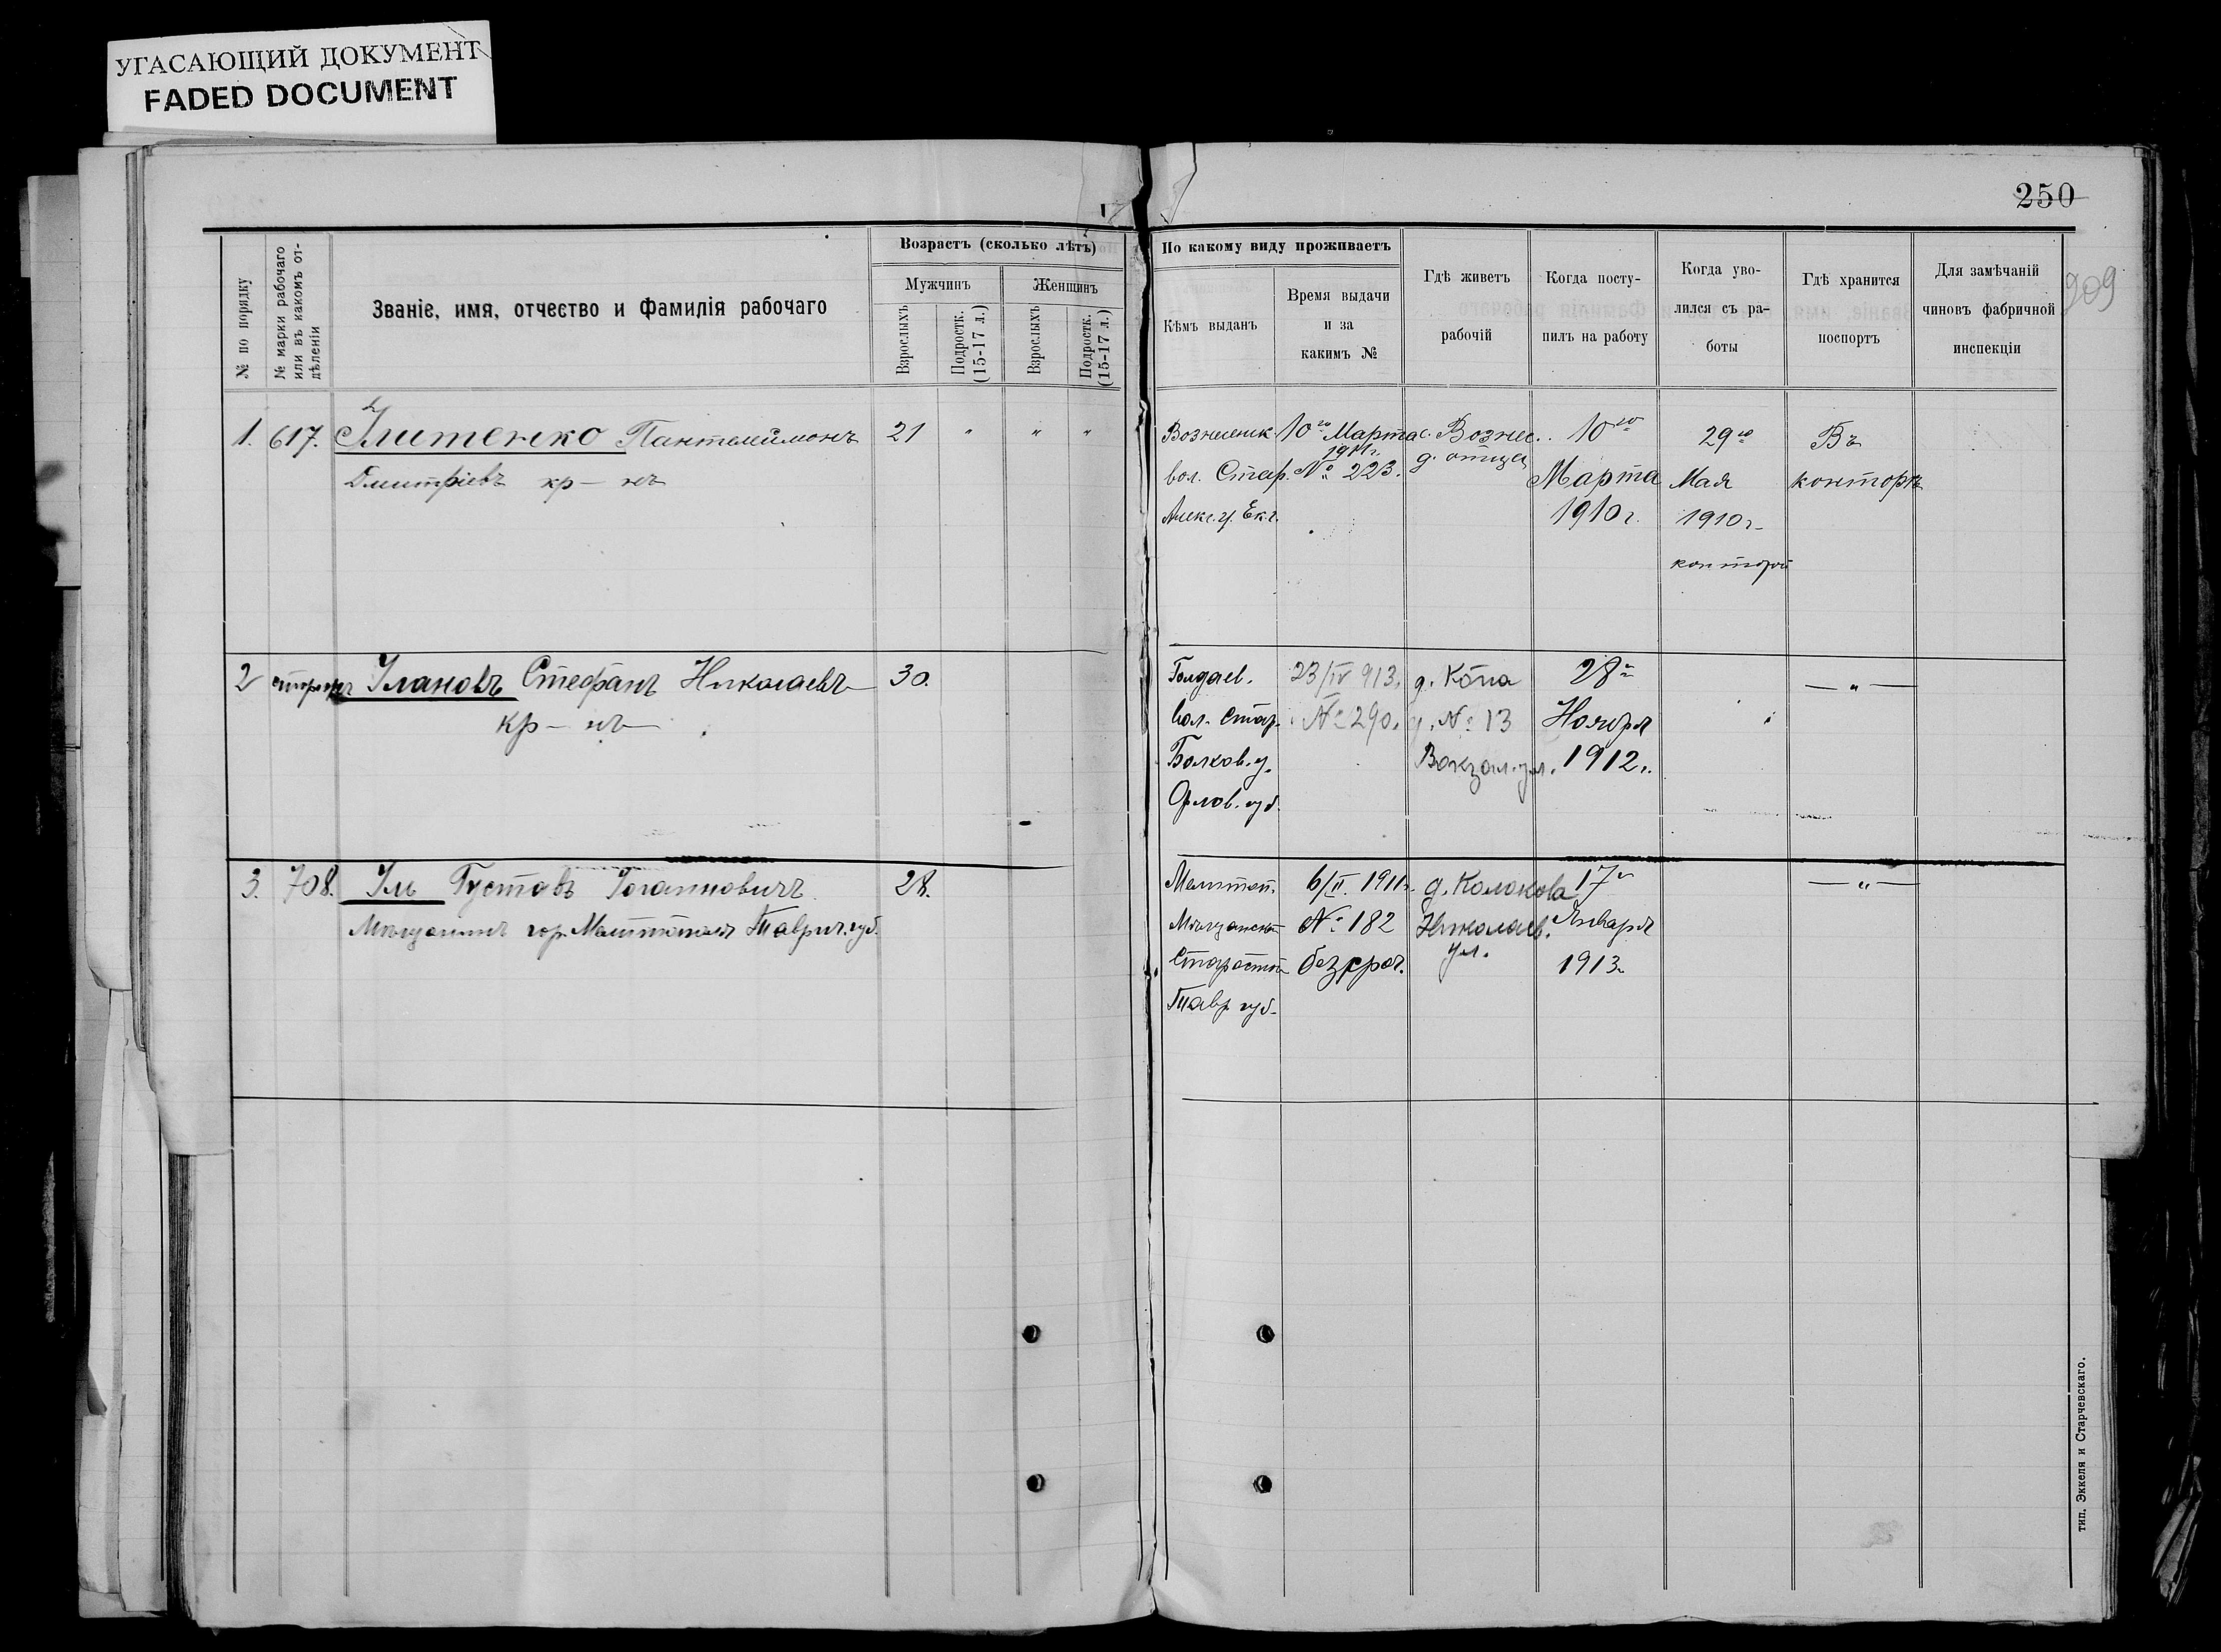 УГАСАЮЩИЙ ДОКУМЕНТ
FADED DOCUMENT
250
909
№ по порядку
№ марки рабочаго
или въ какомъ от-
дѣленіи
Званіе, имя, отчество и фамилія рабочаго
Возрастъ (сколько лѣтъ)
Мужчинъ
Женщинъ
Взрослыхъ
Подростк.
(15-17 л.)
Взрослыхъ
Подростк.
(15-17 л.)
По какому виду проживаетъ
Кѣмъ выданъ
Время выдачи
и за
какимъ №
Гдѣ живетъ
рабочій
Когда посту-
пилъ на работу
Когда уво-
лился съ ра-
боты
Гдѣ хранится
паспортъ
Для замѣчаній
чиновъ фабричной
инспекціи
1. 617. Илитенко Пантелеймонъ 21 " " "
Дмитріевъ кр-нъ
Вознесенск.
вол. Стар.
Алекс. у. Ек. г.
10го Марта
1911г.
№ 223.
с. Вознес.
д. отца
10го
Марта
1910 г.
29го
Мая
1910 г.
конторой
Въ
конторѣ
2 Улановъ Стефанъ Николаевъ 30.
кр-нъ
Вол. Стар.
Болхов. у.
Орлов. губ.
23/IV 913.
№ 290.
д. Кона
у. № 13
Вокзал. ул.
28го
Ноября
1912 г.
— " —
3. 708. Уль Густавъ Іоганновичъ 28.
Мѣщанинъ гор. Мелитополя Таврич. губ.
Мелитоп.
Мѣщанской
Старостой
Тавр. губ.
6/II. 1911 г.
№ 182
безсроч.
д. Колокова
Николаев.
ул.
17го
Января
1913 г.
— " —
тип. Эккеля и Старчевскаго.